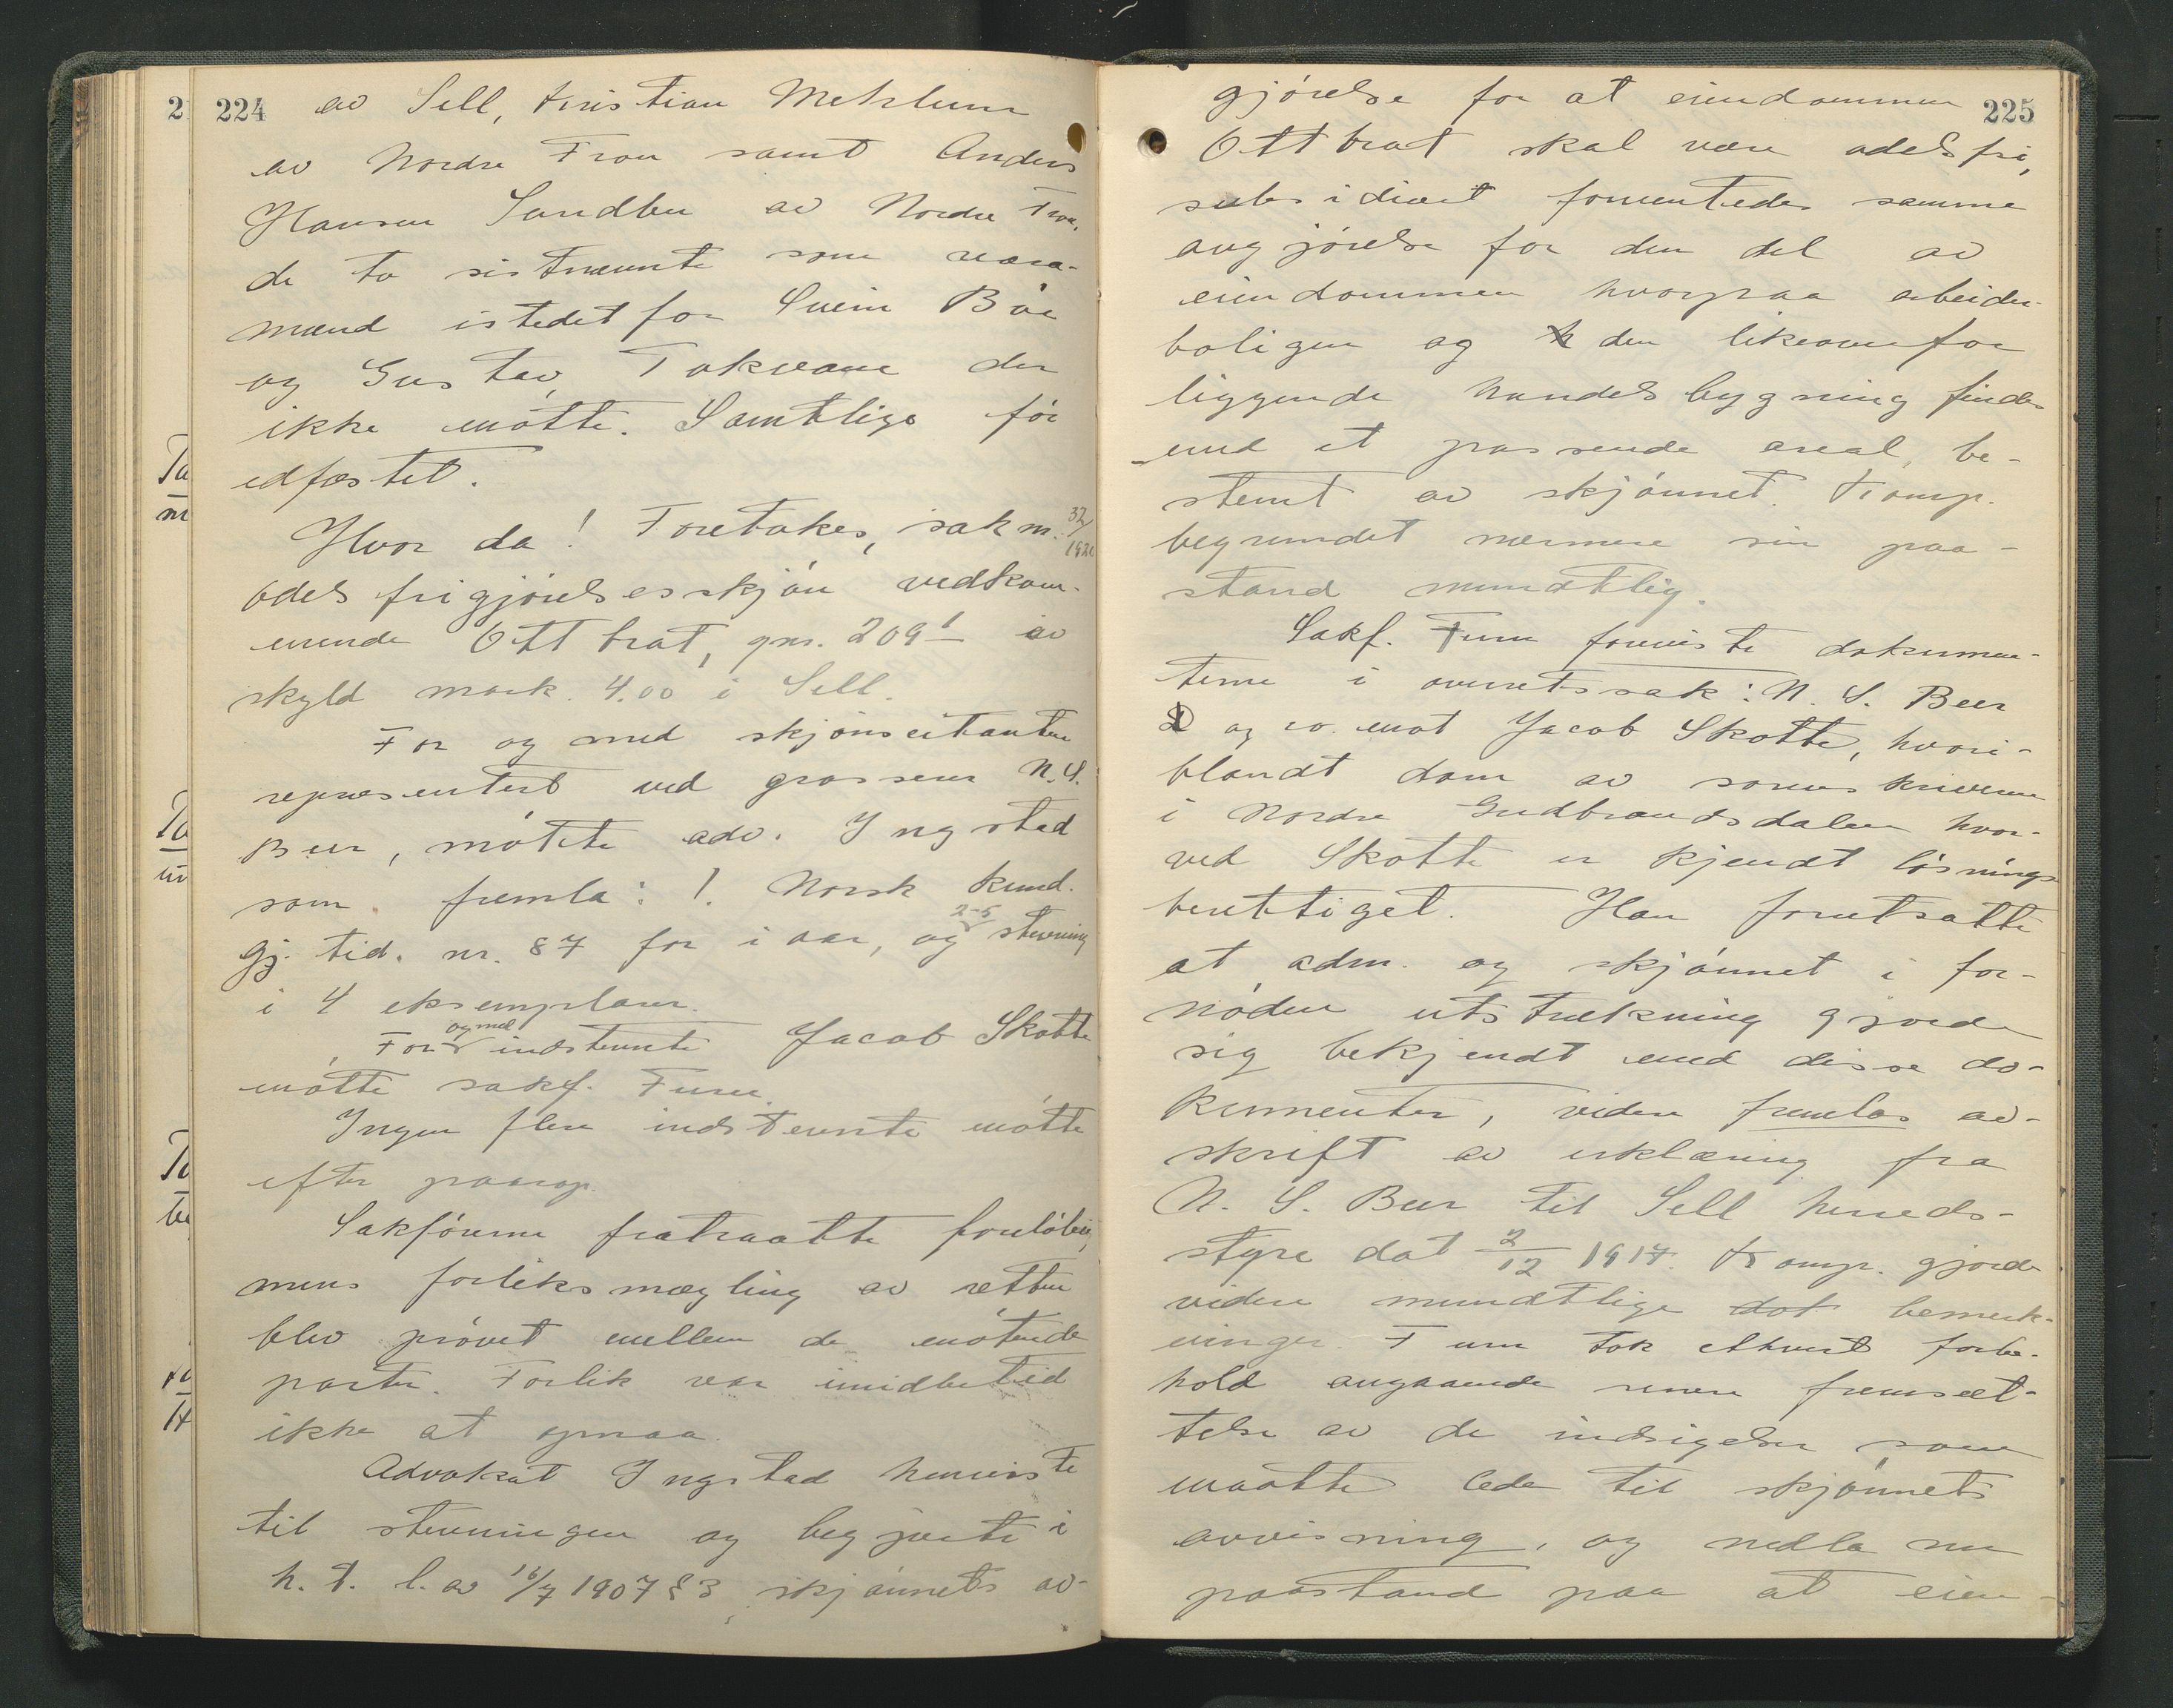 224
av Sell, Kristian Mehlum
av Nordre Fron samt Anders
Hansen Sandbu av Nordre Fron,
de to sistnævnte som vara-
mænd istedetfor Svein Böe
og Gustav Tokvam der
ikke møtte. Samtlige før
edfæstet.
Hvor da! Foretakes, sak nr. 32/1920
odelsfrigjørelsesskjøn vedkom-
mende Ottbrat, gnr. 209 1 av
skyld mark 4.00 i Sell.
For og med skjønscitanten
repræsentert ved grosserer N. S.
Beer, møtte adv. Ingstad
som fremla: 1. Norsk kund.
gj. tid. nr. 87 for i aar, og 2-5 stevning
i 4 eksemplarer.
For og med indstevnte Jacob Skotte
møtte sakf. Furu.
Ingen flere indstevnte møtte
efter paarop.
Sakførerne fratraatte foreløbig,
mens forliksmægling av retten
blev prøvet mellem de møtende
parter. Forlik var imidlertid
ikke at opnaa.
Advokat Ingstad henviste
til stevningen og begjærte i
h. t. l. av 16/7 1907 § 3 skjønnets av-
225
gjørelse for at eiendommen
Ottbrat skal være odelsfri,
subsidiært forventedes samme
avgjørelse for den del av
eiendommen hvorpaa arbeider-
boligen og den likeoverfor
liggende handelsbygning findes
med et passende areal, be-
stemt av skjønnet. Komp.
begrundet nærmere sin paa-
stand mundtlig.
Sakf. Furu foreviste dokumen-
terne i overretssak: N. S. Beer
og co. mot Jacob Skotte, hvori-
blandt dom av sorenskriveren
i Nordre Gudbrandsdalen hvor-
ved Skotte er kjendt løsnings-
berettiget. Han forutsatte
at adm. og skjønnet i for-
nøden utstrækning gjorde
sig bekjendt med disse do-
kumenter, videre fremlas av-
skrift av erklæring fra
N. S. Beer til Sell herreds-
styre dat 2/12 1917. Komp. gjorde
videre mundtlige dot bemerk-
ninger. Furu tok ethvert forbe-
hold angaaende senere fremsæt-
telse av de indsigelser som
maatte lede til skjønnets
avvisning, og nedla nu
paastand paa at eien-